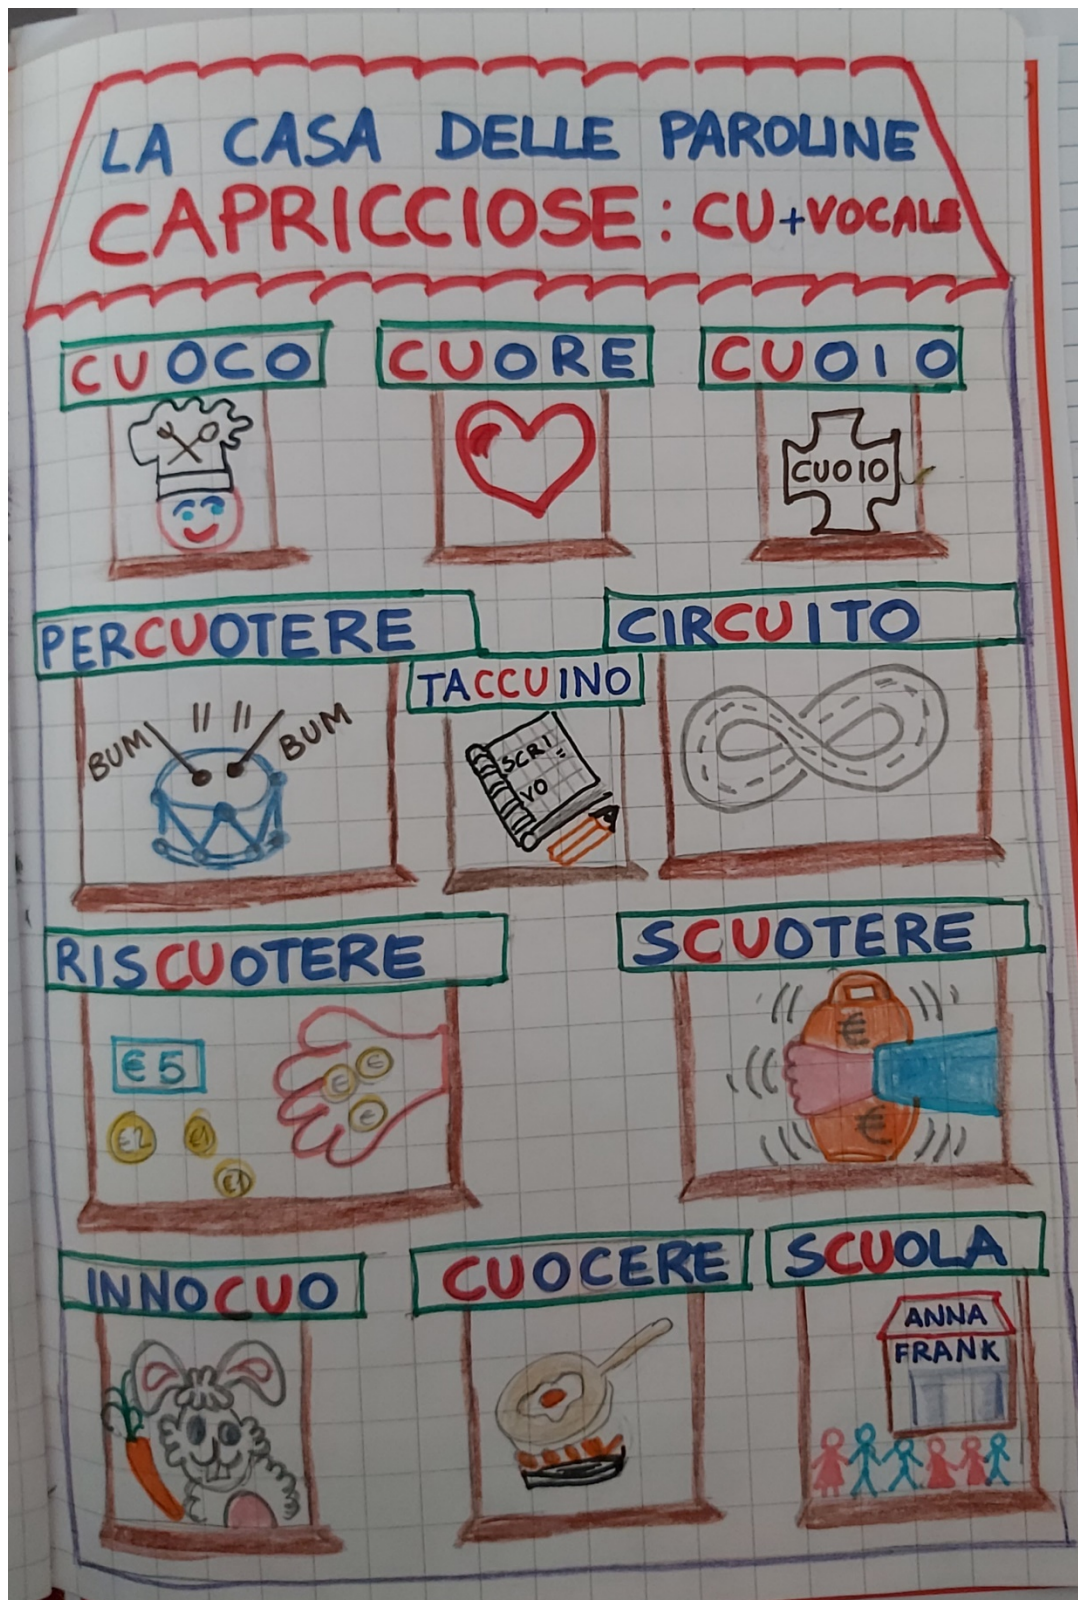 LA CASA DELLE PAROLINE
CAPRICCIOSE: CU+VOCALE
CUOCO
CUORE
CUOIO
CUOIO
PERCUOTERE
CIRCUITO
TACCUINO
BUM
BUM
SCRI=
VO
RISCUOTERE
SCUOTERE
€5
€
€
€
€2
€1
€1
€
€
INNOCUO
CUOCERE
SCUOLA
ANNA
FRANK